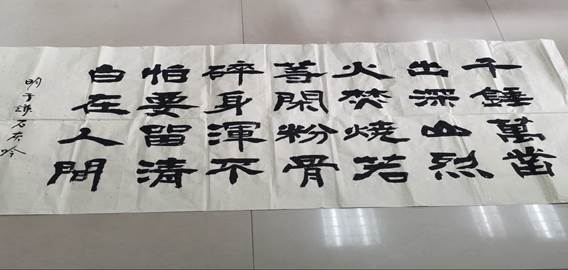 千錘萬凿
出深山烈
火焚燒若
等閑粉骨
碎身渾不
怕要留清
白在人間
明于谦石灰吟